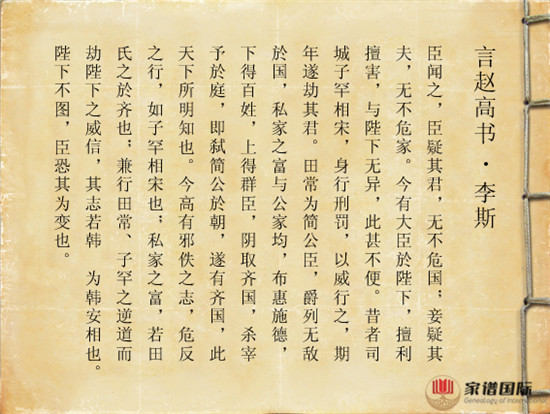 言赵高书·李斯
臣闻之，臣疑其君，无不危国；妾疑其
夫，无不危家。今有大臣於陛下，擅利
擅害，与陛下无异，此甚不便。昔者司
城子罕相宋，身行刑罚，以威行之，期
年遂劫其君。田常为简公臣，爵列无敌
於国，私家之富与公家均，布惠施德，
下得百姓，上得群臣，阴取齐国，杀宰
予於庭，即弑简公於朝，遂有齐国，此
天下所明知也。今高有邪佚之志，危反
之行，如子罕相宋也；私家之富，若田
氏之於齐也；兼行田常、子罕之逆道而
劫陛下之威信，其志若韩　为韩安相也。
陛下不图，臣恐其为变也。
家谱国际